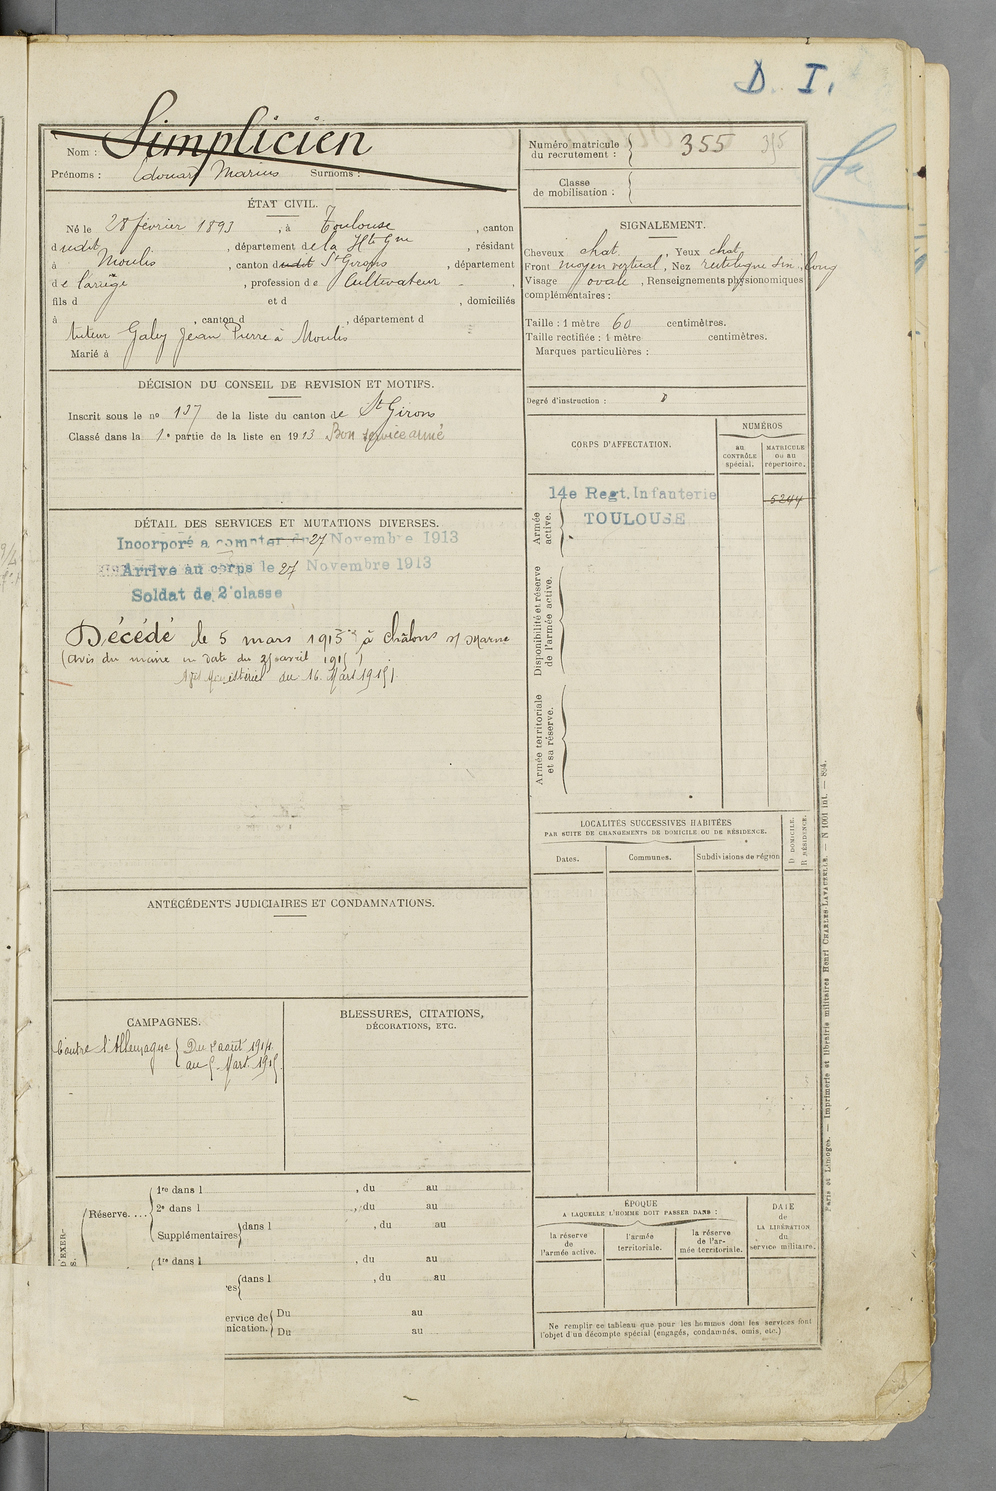 D. I.
Nom : Simplicien
Prénoms : Edouard Marius Surnoms :
ÉTAT CIVIL.
Né le 28 février 1893, à Toulouse, canton
dudit, département de la Hte Gne, résidant
à Moulis, canton dudit St Girons, département
de l'ariège, profession de Cultivateur,
fils d et d, domiciliés
à, canton d, département d
tuteur Galey Jean Pierre à Moulis
Marié à
DÉCISION DU CONSEIL DE REVISION ET MOTIFS.
Inscrit sous le no 137 de la liste du canton de St Girons
Classé dans la 1e partie de la liste en 1913 Bon service armé
DÉTAIL DES SERVICES ET MUTATIONS DIVERSES.
Incorporé a compter du 27 Novembre 1913
Arrivé au corps le 27 Novembre 1913
Soldat de 2e classe
Décédé le 5 mars 1915 à châlons s/ Marne
(avis du maire en date du 25 avril 1915)
Ministériel du 16 Mars 1915)
ANTÉCÉDENTS JUDICIAIRES ET CONDAMNATIONS.
CAMPAGNES.
Contre l'Allemagne { Du 2 août 1914
au 5 Mars 1915
BLESSURES, CITATIONS,
DÉCORATIONS, ETC.
D'EXER-
Réserve....
1re dans l, du au
2e dans l, du au
Supplémentaires dans l, du au
1re dans l, du au
res dans l, du au
ervice de Du au
nication. Du au
Numéro matricule
du recrutement : 355
Classe
de mobilisation :
SIGNALEMENT.
Cheveux chat., Yeux chat.
Front moyen vertical, Nez rectiligne sin., long
Visage ovale, Renseignements physionomiques
complémentaires :
Taille : 1 mètre 60 centimètres.
Taille rectifiée : 1 mètre centimètres.
Marques particulières :
Degré d'instruction :
CORPS D'AFFECTATION.
NUMÉROS
au
CONTRÔLE
spécial.
MATRICULE
ou au
répertoire.
Armée
active.
14e Regt. Infanterie
TOULOUSE
5244
Disponibilité et réserve
de l'armée active.
Armée territoriale
et sa réserve.
LOCALITÉS SUCCESSIVES HABITÉES
PAR SUITE DE CHANGEMENTS DE DOMICILE OU DE RÉSIDENCE.
Dates.
Communes.
Subdivisions de région
D DOMICILE.
R RÉSIDENCE.
ÉPOQUE
A LAQUELLE L'HOMME DOIT PASSER DANS :
la réserve
de
l'armée active.
l'armée
territoriale.
la réserve
de l'ar-
mée territoriale.
DATE
de
LA LIBÉRATION
du
service militaire.
Ne remplir ce tableau que pour les hommes dont les services font
l'objet d'un décompte spécial (engagés, condamnés, omis, etc.)
Paris et Limoges. — Imprimerie et librairie militaires Henri CHARLES-LAVAUZELLE. — N 1001 int. — 894.